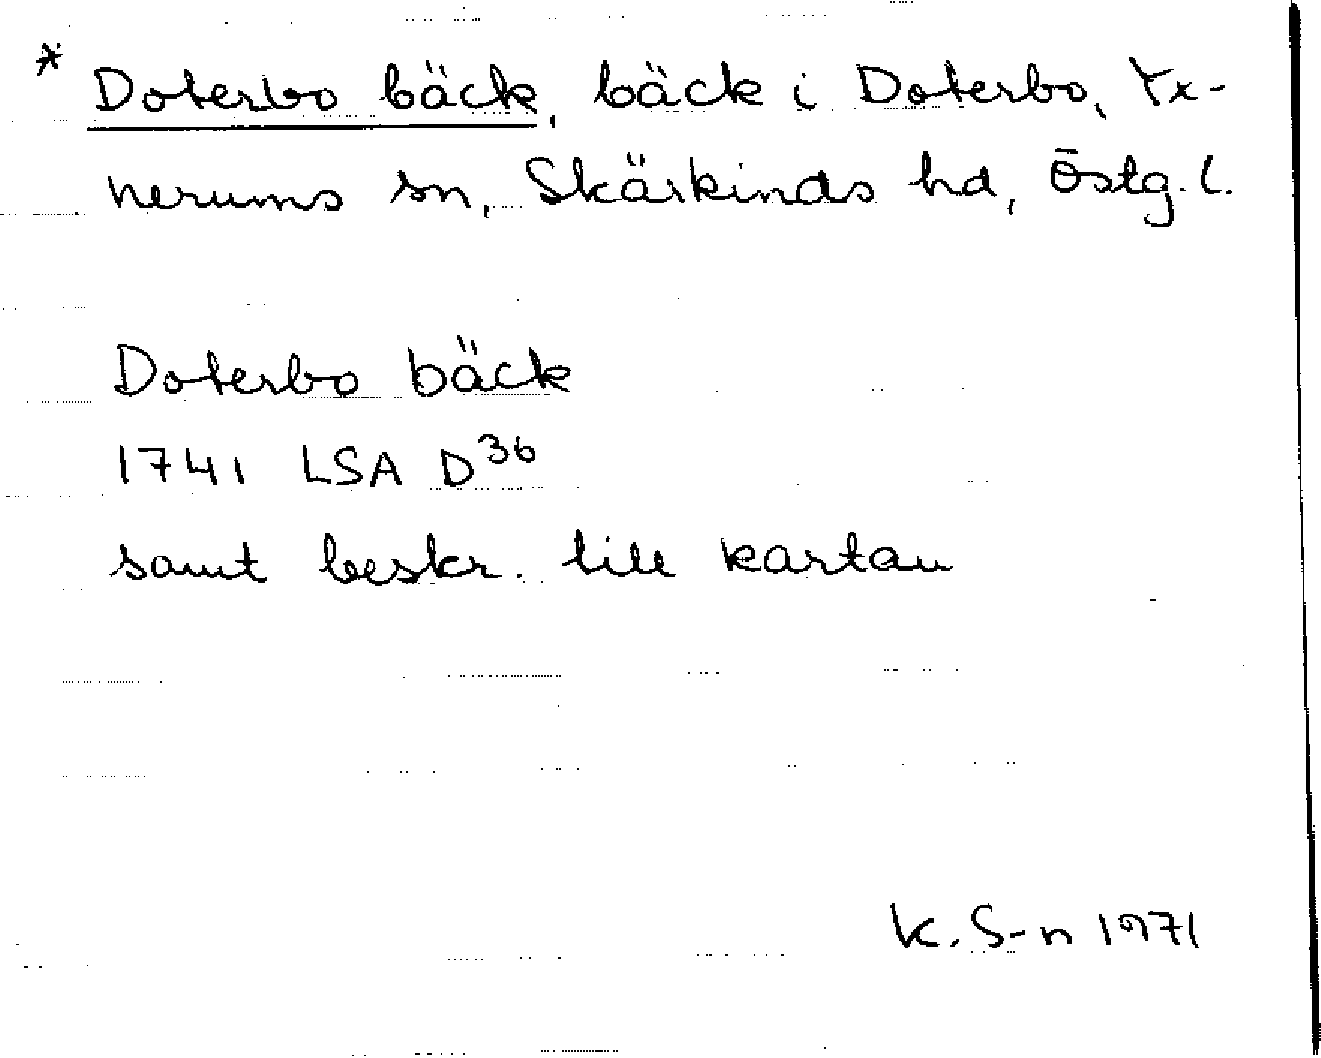 * Doterbo bäck, bäck i Doterbo, Yx-
nerums sn, Skärkinds hd, Östg. l.
Doterbo bäck
1741 LSA D³⁶
samt beskr. till kartan
K. S-n 1971